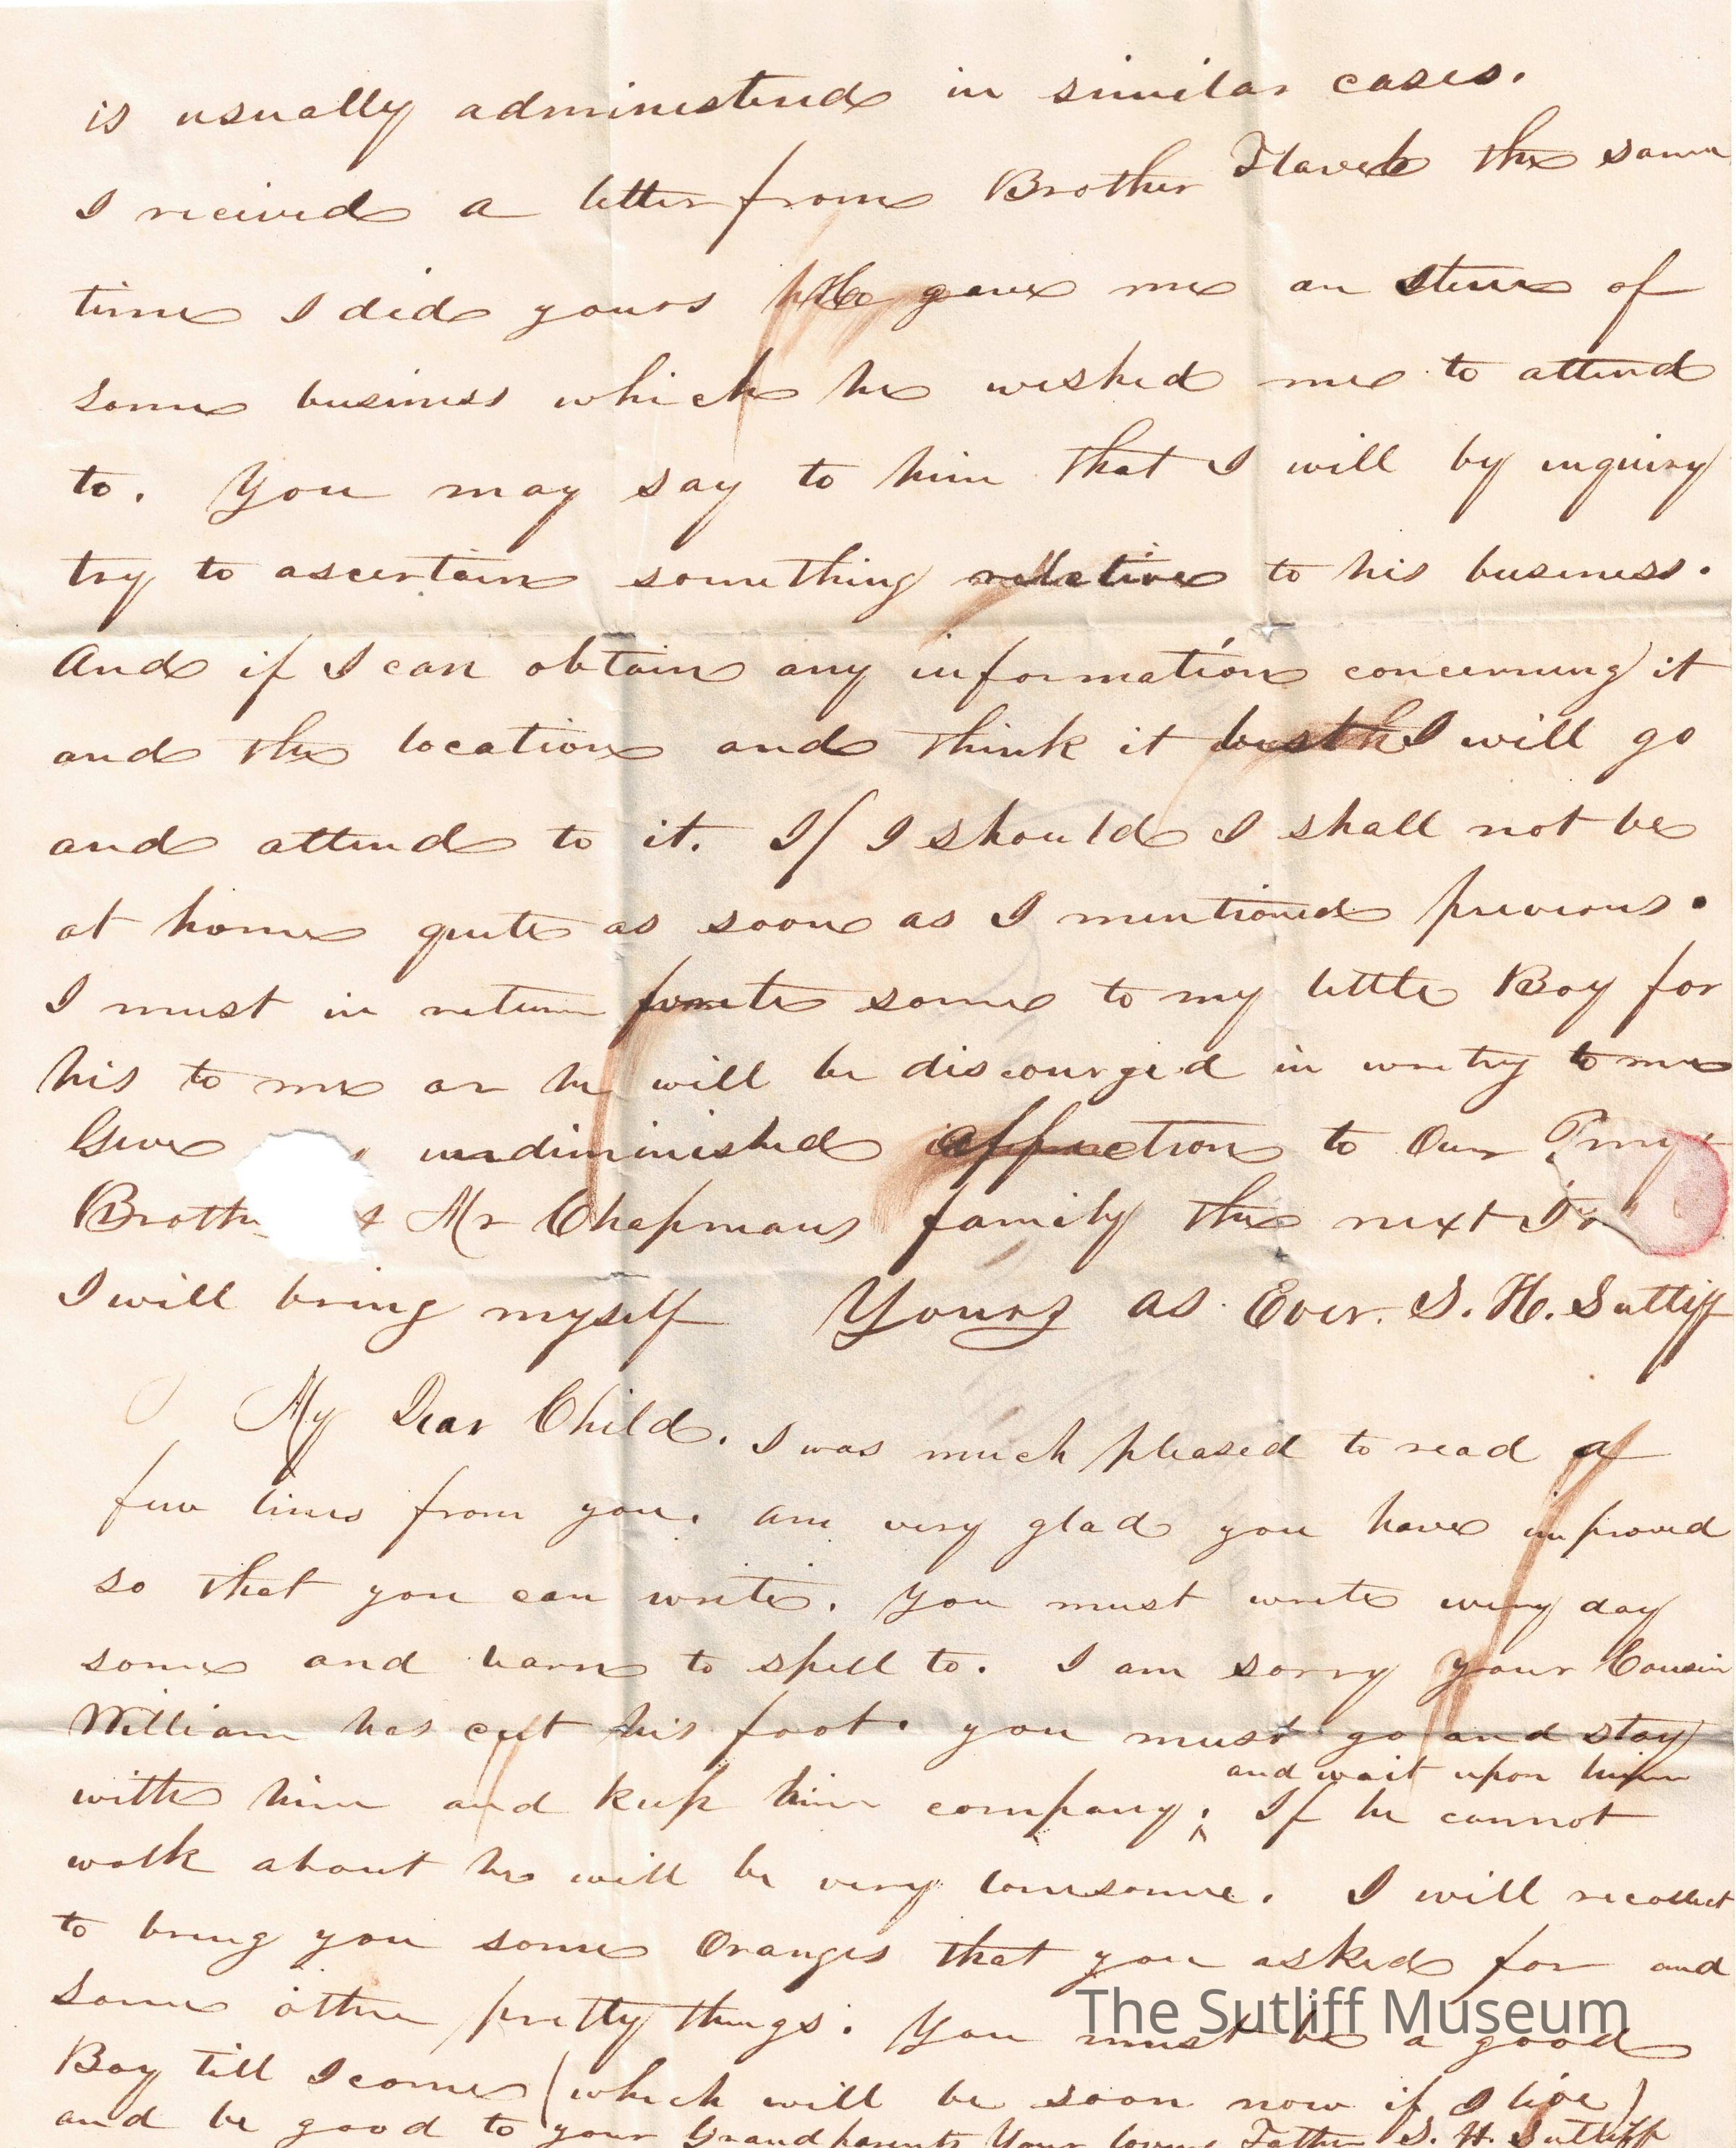 is usually administered in similar cases.
I reicived a letter from Brother Flavel the same
time I did yours He gave me an item of
some business which he wished me to attend
to. You may say to him that I will by inquiry
try to ascertain something relative to his business.
And if I can obtain any information concerning it
and the location and think it best I will go
and attend to it. If I should I shall not be
at home quite as soon as I mentioned previous.
I must in return write some to my little Boy for
his to me or he will be discourged in writy to me
Give undiminished affection to Our
Brother & Mr Chapmans family the next
I will bring myself Yours as Ever. S. H. Sutliff
My Dear Child. I was much pleased to read a
few lines from you. am very glad you have improved
so that you can write. You must write every day
some and learn to spell to. I am sorry your Cousin
William has cut his foot. you must go and stay
and wait upon him
with him and keep him company; If he cannot
walk about he will be very lonesome. I will recollect
to bring you some Oranges that you asked for and
some other pretty things. You must be a good
The Sutliff Museum
Boy till I come (which will be soon now if I live)
and be good to your Grandparents Your loving Father S. H. Sutliff